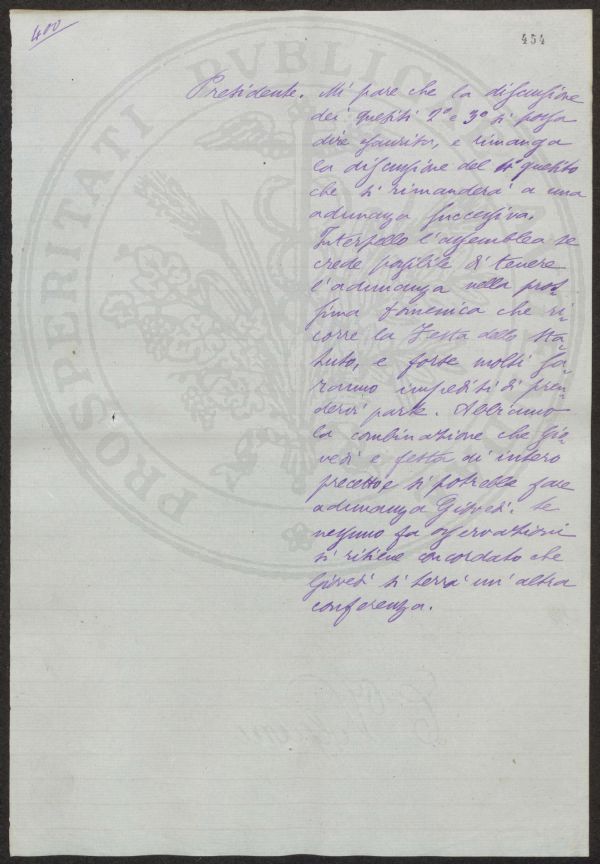 400
454
Presidente. Mi pare che la discussione
dei quesiti 2º e 3º si possa
dire esaurita, e rimanga
la discussione del 4º quesito
che si rimanderà a una
adunanza successiva.
Interpello l'assemblea se
crede possibile di tenere
l'adunanza nella pros-
sima domenica che ri-
corre la Festa dello Sta-
tuto, e forse molti sa-
ranno impediti di pren-
dervi parte. Abbiamo
la combinazione che Gio-
vedì è festa di intero
precetto, e si potrebbe fare
adunanza Giovedì. Se
nessuno fa osservazioni
si ritiene concordato che
Giovedì si terrà un'altra
conferenza.
PROSPERITATI PVBLICAE